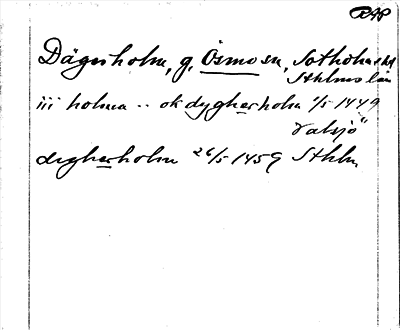 RAP
Dägerholm, g, Ösmo sn, Sotholms hd
Sthlms län
iii holma -- ok dygherholm 1/5 1449
Valsjö"
degherholm 26/5 1459 Sthlm